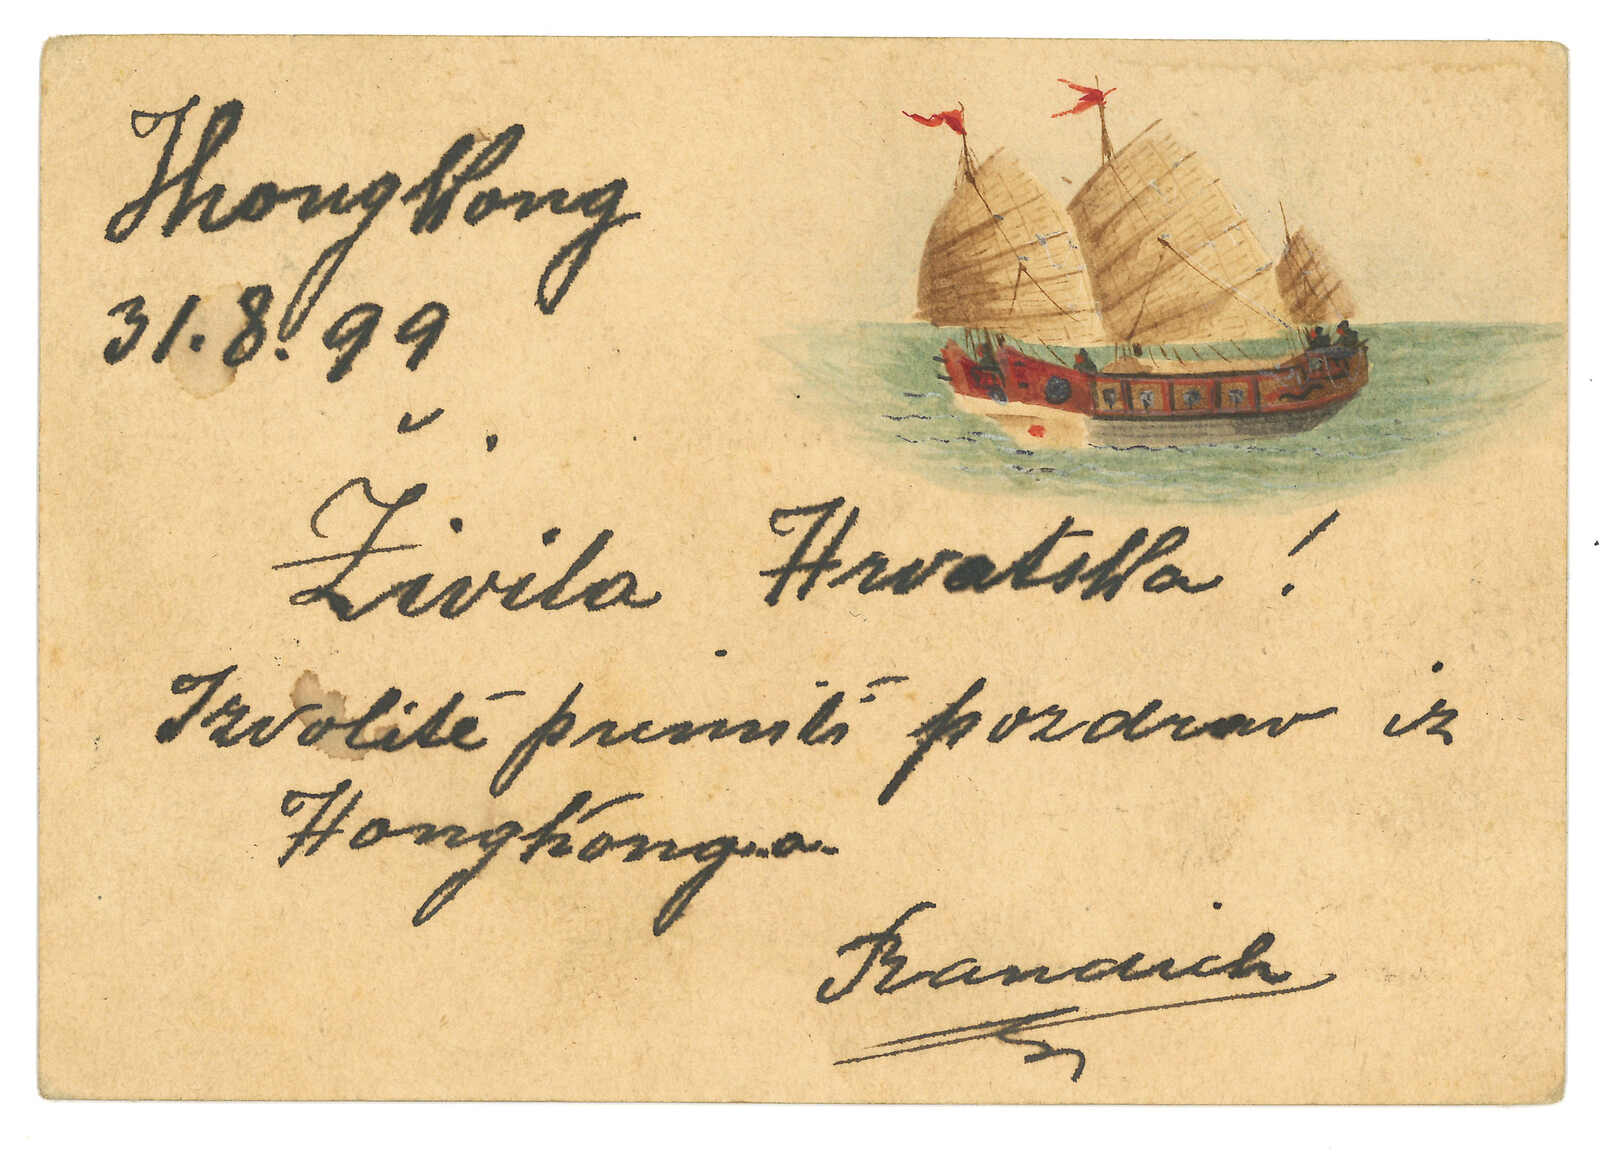 HongKong
31.8.99
Živila Hrvatska!
Izvolite primiti pozdrav iz
HongKonga